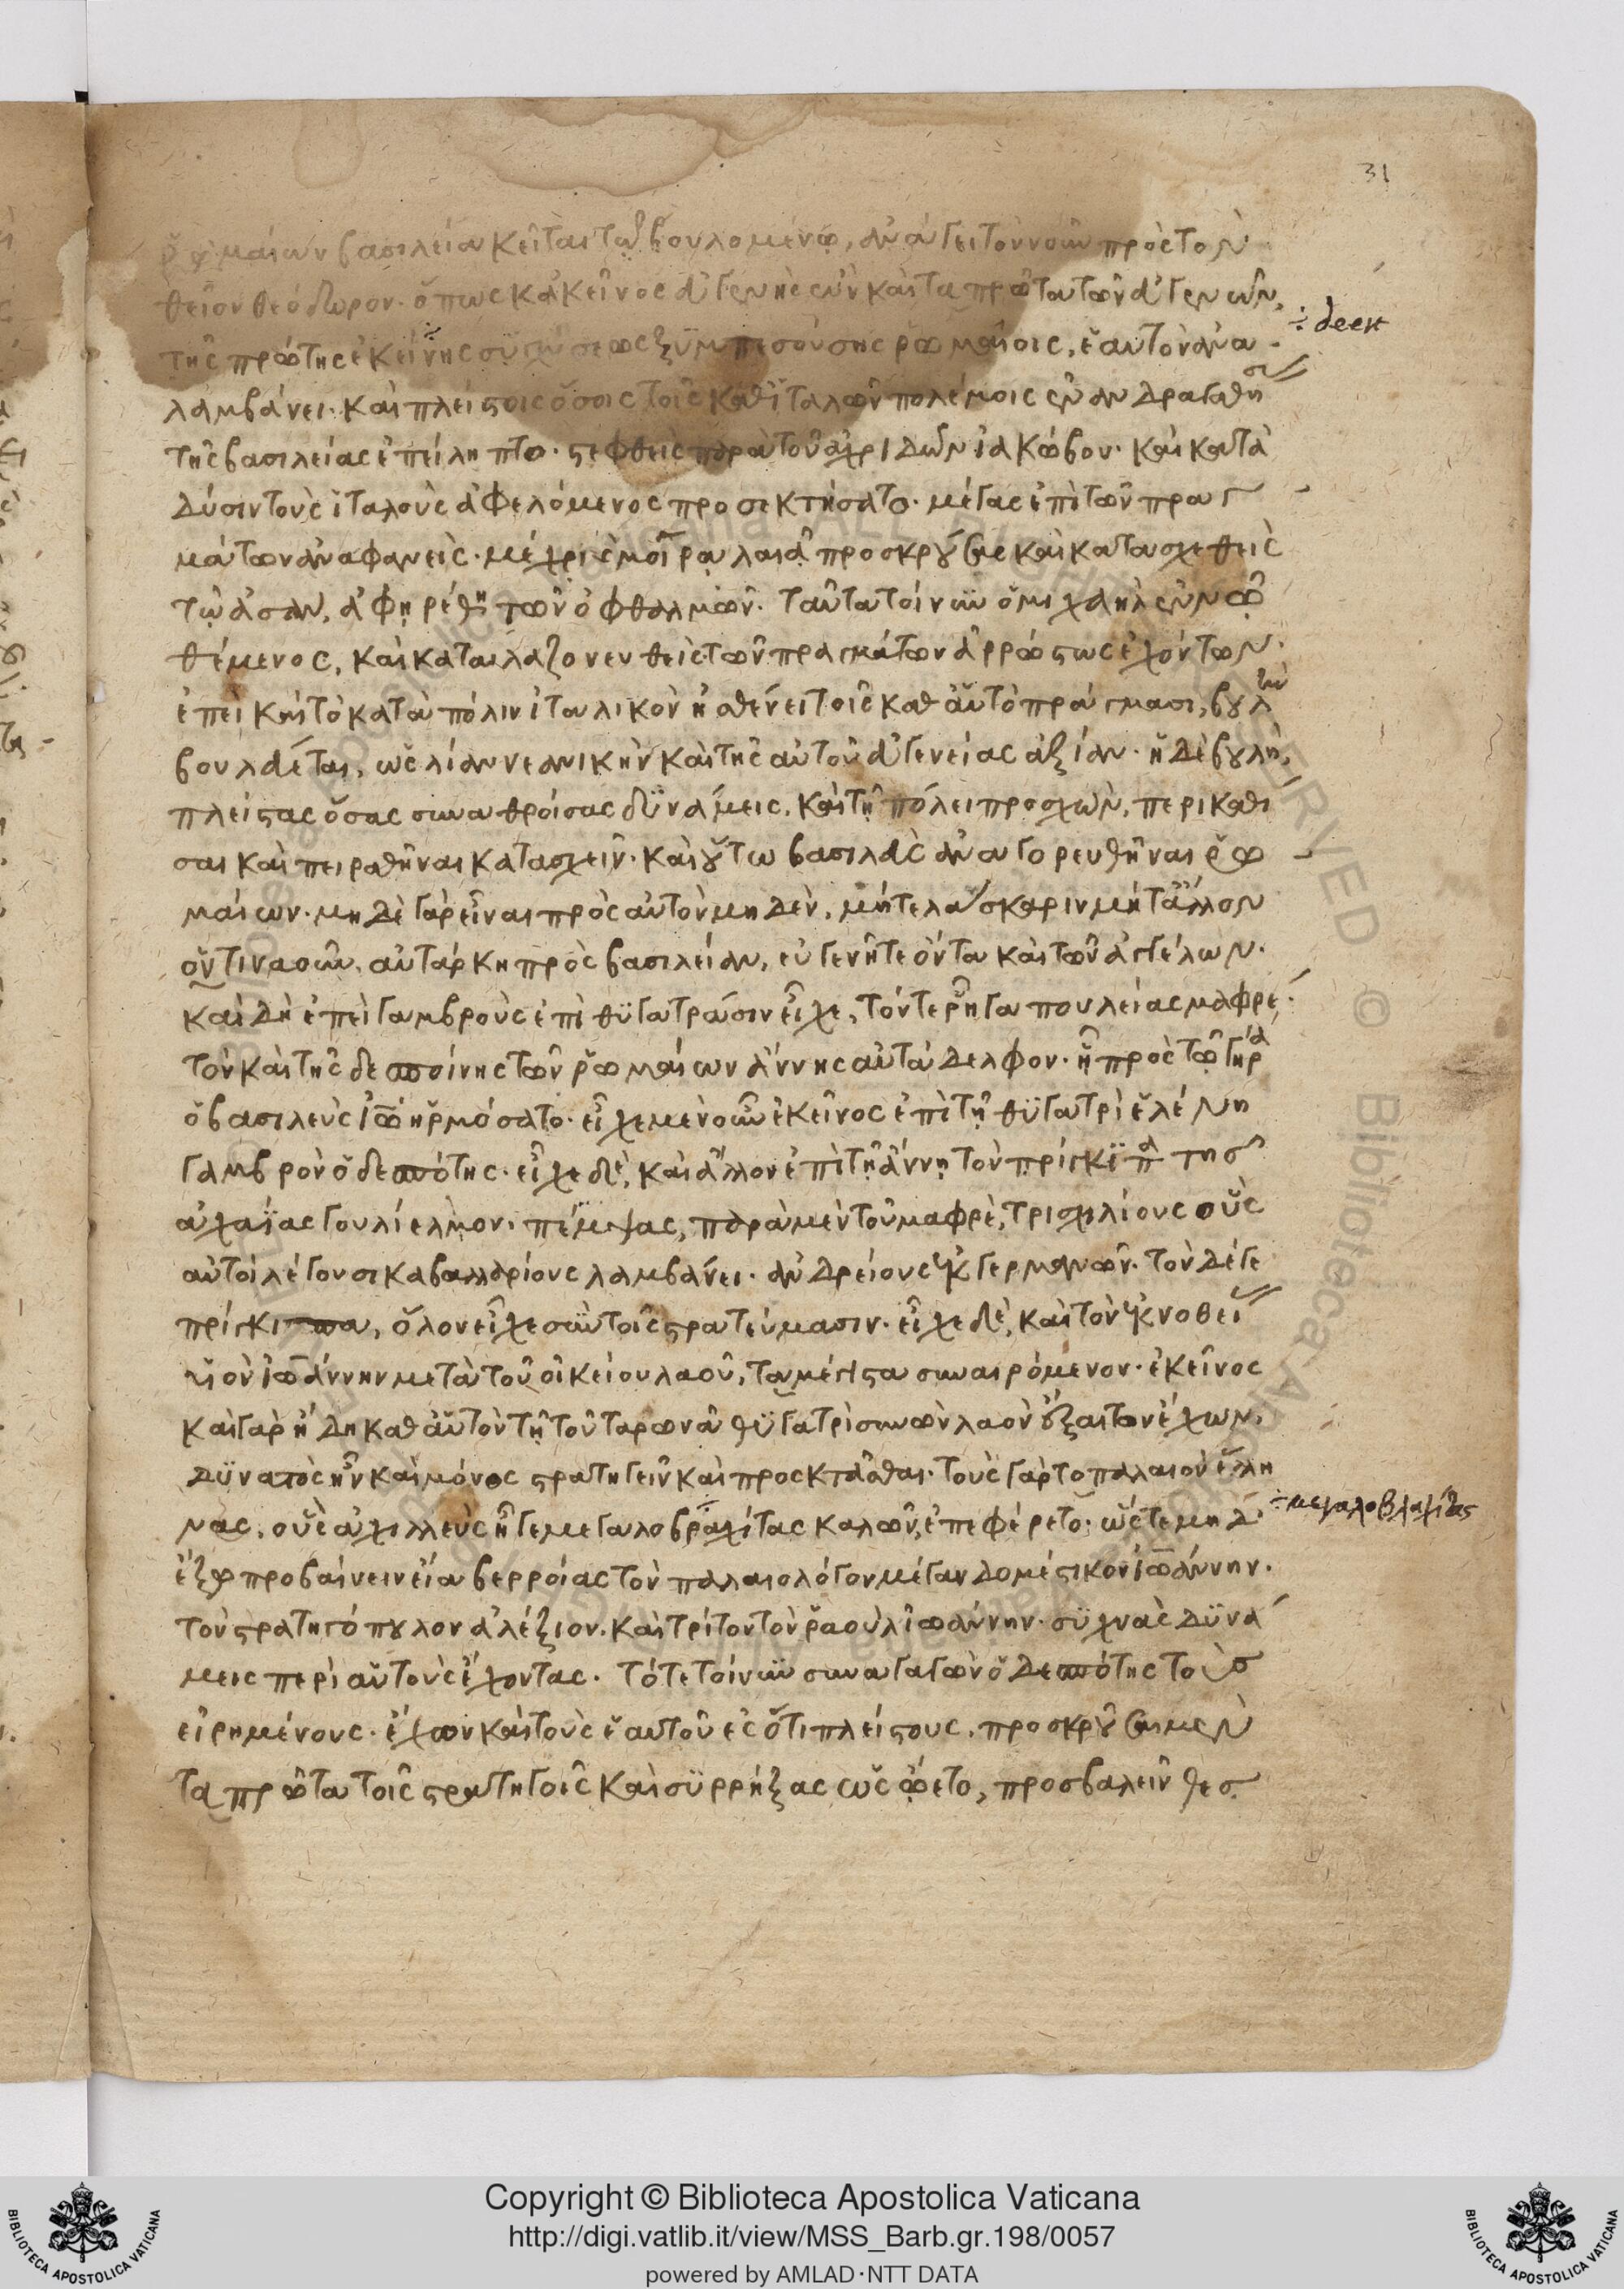 31
ῥωμαίων βασιλεία κεῖται τῷ βουλομένῳ, ἀνάγει τὸν νοῦν πρὸς τὸν
θεῖον θεόδωρον. ὅπως κἀκεῖνος εὐγενὴς ὢν καὶ τὰ πρῶτα τῶν εὐγενῶν,
÷ deest
τῆς πρώτης ἐκείνης συγχύσεως ξυμπεσούσης ῥωμαίοις, ἑαυτὸν ἀνα
λαμβάνει. καὶ πλείστοις ὅσοις τοῖς κατ' ἰταλῶν πολέμοις ἐνανδραγαθή
σας
τῆς βασιλείας ἐπείληπτο. στεφθεὶς παρὰ τοῦ ἀχριδῶν ἰακώβου. καὶ κατὰ
δύσιν τοὺς ἰταλοὺς ἀφελόμενος προσεκτήσατο. μέγας ἐπὶ τῶν πραγ
μάτων ἀναφανεὶς. μέχρις ἐν μοίρᾳ λαιᾷ προσκρούσας καὶ κατασχεθεὶς
τῷ ἀσὰν, ἀφῃρέθη τῶν ὀφθαλμῶν. ταῦτα τοίνυν ὁ μιχαὴλ ἐν νῷ
θέμενος, καὶ καταλαζονευθεὶς τῶν πραγμάτων ἀρρώστως ἐχόντων.
ἐπεὶ καὶ τὸ κατὰ πόλιν ἰταλικὸν ἠσθένει τοῖς καθ' αὑτὸ πράγμασι, βουλὴν
βουλεύεται, ὡς λίαν νεανικὴν καὶ τῆς αὐτοῦ εὐγενείας ἀξίαν. ἡ δὲ βουλή,
πλείστας ὅσας συναθροίσας δυνάμεις, καὶ τῇ πόλει προσχὼν, περικαθί
σαι καὶ πειραθῆναι κατασχεῖν. καὶ οὕτω βασιλεὺς ἀναγορευθῆναι ῥω
μαίων. μηδὲ γὰρ εἶναι πρὸς αὐτὸν μηδὲν, μήτε λάσκαριν μήτ' ἄλλον
ὅντιναοῦν, αὐτάρκη πρὸς βασιλείαν, εὐγενῆ τε ὄντα καὶ τῶν ἀγγέλων.
καὶ δὴ ἐπεὶ γαμβροὺς ἐπὶ θυγατράσιν εἶχε, τόν τε ῥῆγα πουλείας μαφρέ,
τὸν καὶ τῆς δεσποίνης τῶν ῥωμαίων ἄννης αὐτάδελφον. ἣ πρὸς τῷ γήρᾳ
ὁ βασιλεὺς ἰω ἡρμόσατο. εἶχε μὲν οὖν ἐκεῖνος ἐπὶ τῇ θυγατρὶ ἑλένῃ
γαμβρὸν ὁ δεσπότης. εἶχε δὲ, καὶ ἄλλον ἐπὶ τῇ ἄννῃ τὸν πρίγκιπα τῆς
ἀχαΐας γουλίελμον. πέμψας, παρὰ μὲν τοῦ μαφρὲ, τρισχιλίους οὓς
αὐτοὶ λέγουσι καβαλλαρίους λαμβάνει. ἀνδρείους ἐκ γερμανῶν. τὸν δέ γε
πρίγκιπα, ὅλον εἶχε σὺν τοῖς στρατεύμασιν. εἶχε δὲ, καὶ τὸν ἐκ νοθείας
υἱὸν ἰωάννην μετὰ τοῦ οἰκείου λαοῦ, τὰ μέγιστα συναιρόμενον. ἐκεῖνος
καὶ γὰρ ἤδη καθ' αὑτὸν τῇ τοῦ ταρωνᾶ θυγατρὶ συνὼν λαὸν οὐκ ἔξαιτον ἔχων,
δυνατὸς ἦν καὶ μόνος στρατηγεῖν καὶ προσκτᾶσθαι. τοὺς γὰρ τὸ παλαιὸν ἕλλη
νας, οὓς ἀχιλλεὺς ἦγε μεγαλοβραχίτας καλῶν, ἐπεφέρετο. ὥστε μηδ'
÷ μεγαλοβλαχίτας
ἔξω προβαίνειν εἴα βερροίας τὸν παλαιολόγον μέγαν δομέστικον ἰωάννην.
τὸν στρατηγόπουλον ἀλέξιον. καὶ τρίτον τὸν ῥαοὺλ ἰωάννην. συχνὰς δυνά
μεις περὶ αὑτοὺς ἔχοντας. τότε τοίνυν συναγαγὼν ὁ δεσπότης τοὺς
εἰρημένους. ἔχων καὶ τοὺς ἑαυτοῦ ἐς ὅτι πλείστους. προσκρούσαι μὲν
τὰ πρῶτα τοῖς στρατηγοῖς καὶ συρρήξας ὡς ᾤετο, προσβαλεῖν θεσ
Copyright © Biblioteca Apostolica Vaticana
http://digi.vatlib.it/view/MSS_Barb.gr.198/0057
powered by AMLAD·NTT DATA
BIBLIOTECA APOSTOLICA VATICANA
BIBLIOTECA APOSTOLICA VATICANA